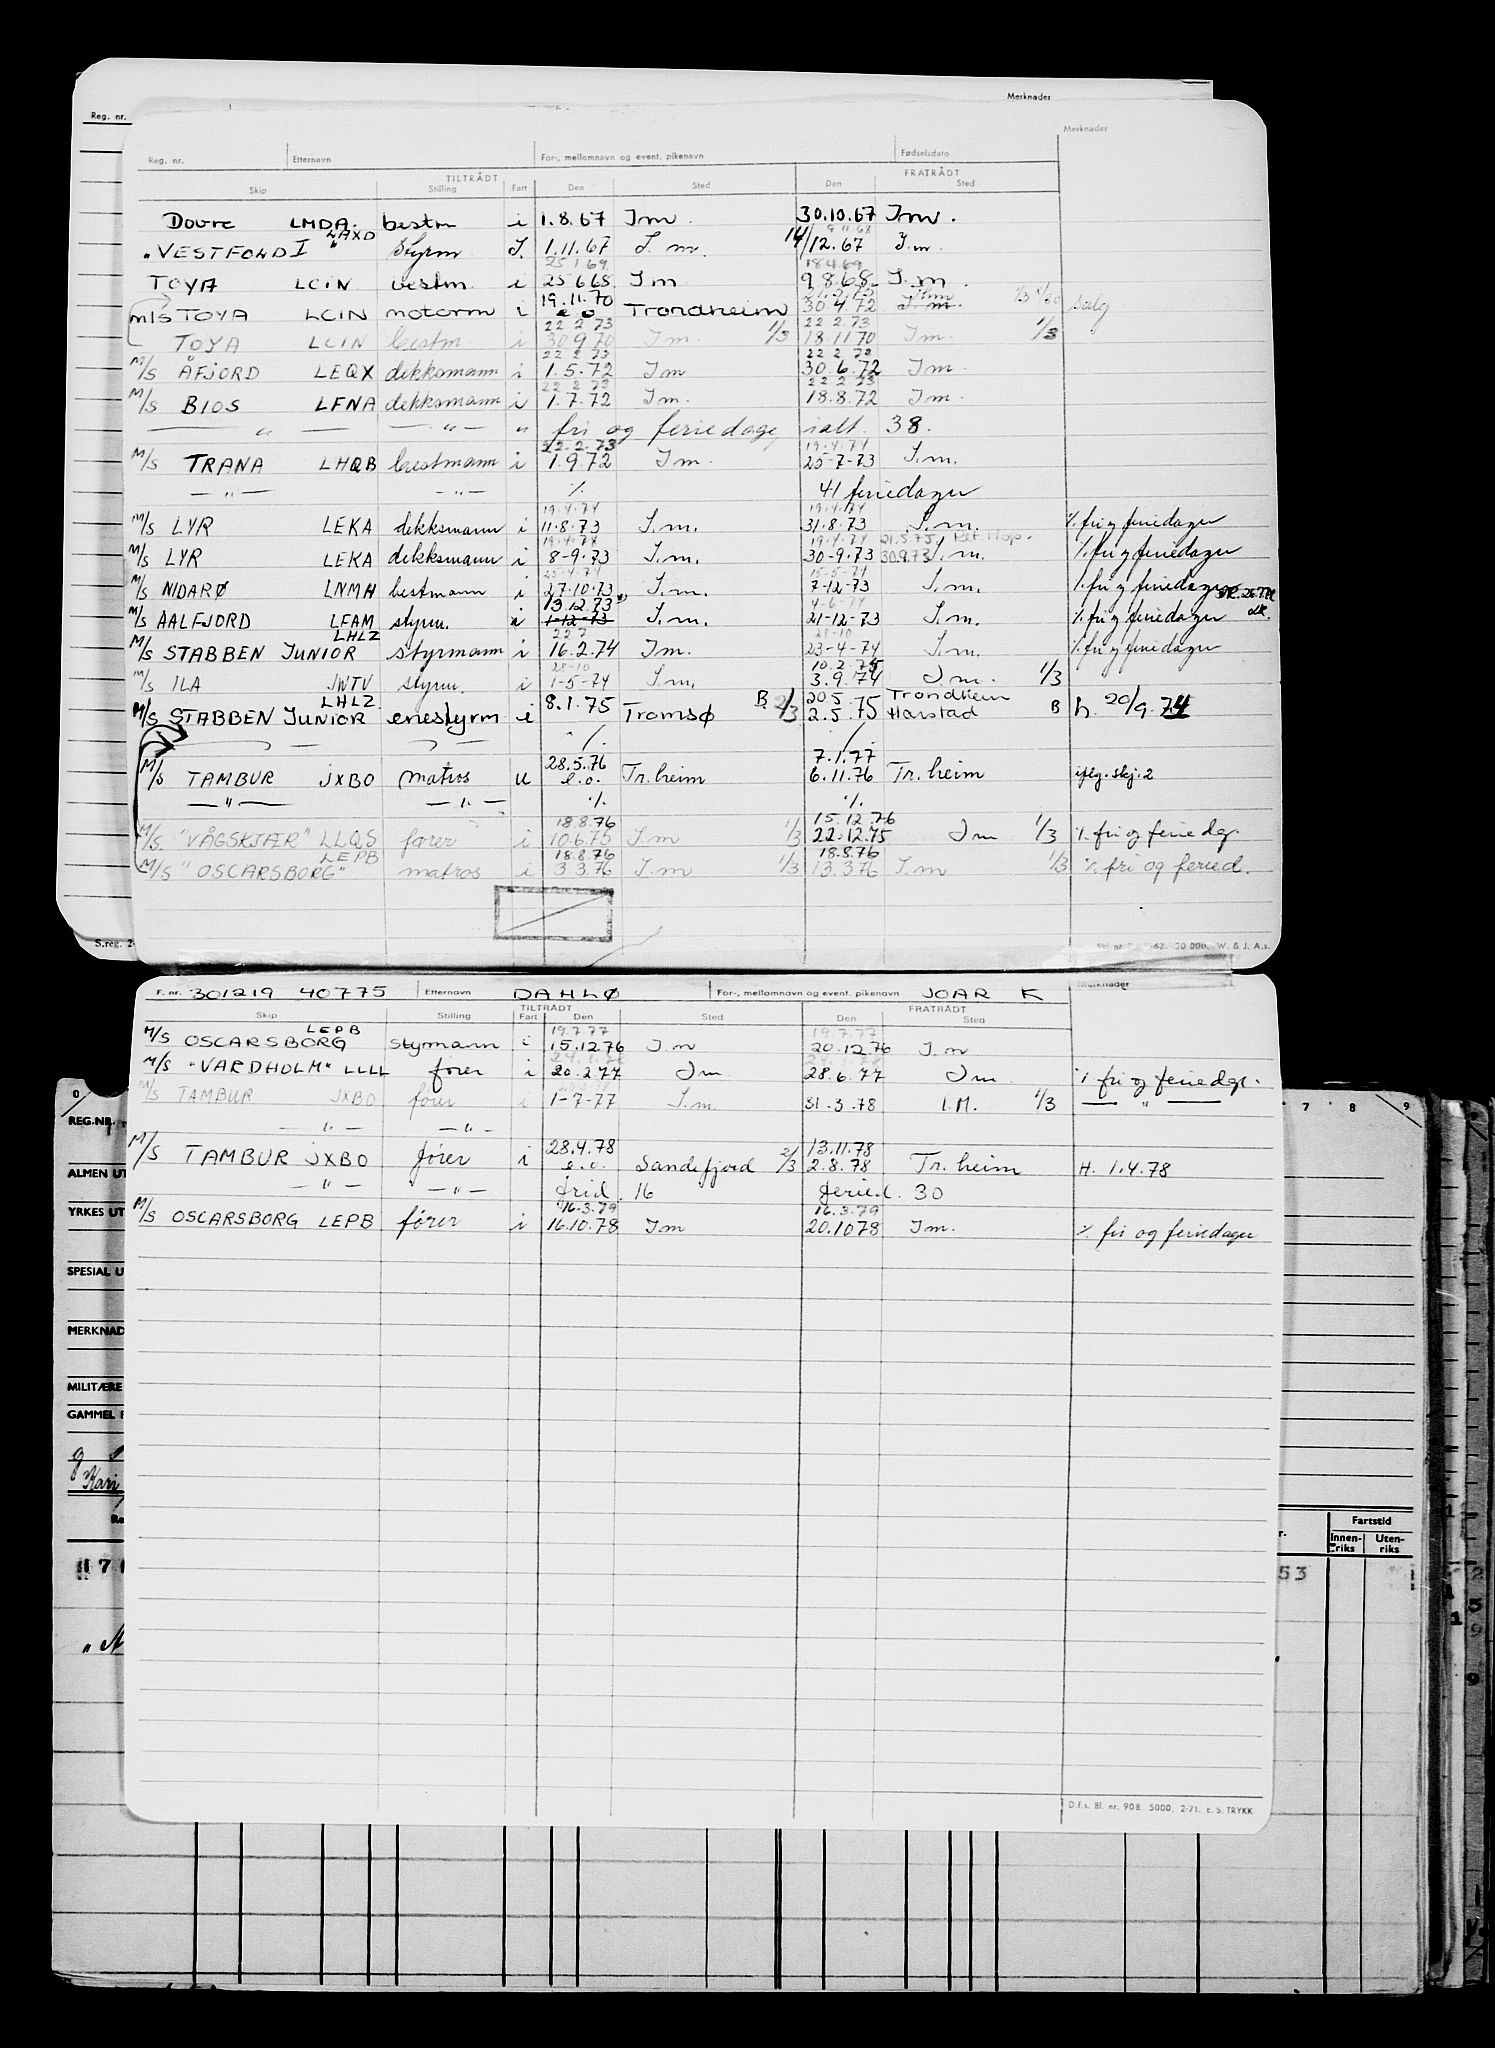 Merknader
Reg. nr.
Merknader
Reg. nr. Etternavn For-, mellomnavn og event. pikenavn Fødselsdato
TILTRÅDT FRATRÅDT
Skip Stilling Fart Den Sted Den Sted
Dovre LMDA. bestm i 1.8.67 Im. 30.10.67 Im.
LAXD 9 11 68
"VESTFOLD I" Styrm I. 1.11.67 I.m. 14/12.67 I.m.
25 1 69 18 4 69
TOYA LCIN bestm. i 25 6 68 Im 9 8.68 I.m.
19.11.70
m/s TOYA LCIN motorm i e.o. Trondheim 30.4.72 I.m. salg
22 2 73 22 2 73
TOYA LCIN bestm. i 30 9 70 Im. 1/3 18.11 70 Im. 1/3
22 2 73 22 2 73
M/S ÅFJORD LEQX dekksmann i 1.5.72 Im 30.6.72 Im.
22 2 73 22 2 73
M/S BIOS LFNA dekksmann i 1.7.72 Im. 18.8.72 Im.
— " — — " — " fri og feriedage, ialt. 38.
22.2.73 19.4.74
M/S TRANA LHQB bestmann i 1.9.72 Im. 25-7-73 I.m.
— " — — " — % 41 feriedager
19.4.74 19.4.74
M/S LYR LEKA dekksmann i 11.8.73 I.m. 31.8.73 I.m. % fri og feriedager
19.4.74 19.4.74 21.5.75
M/S LYR LEKA dekksmann i 8-9-73 I.m. 30-9-73 30.9.73 I.m. % fri og feriedager
25-4-74 15-5-74
M/S NIDARØ LNMH bestmann i 27.10.73 I.m. 7-12-73 I.m. % fri og feriedager
13.12.73 4-6-74
M/S AALFJORD LFAM styrm. i 1-12-73 I.m. 21-12-73 I.m. % fri og feriedager
LHLZ 22 7 28-10
M/S STABBEN JUNIOR styrmann i 16.2.74 Im. 23-4-74 I.m. % fri og feriedager
28-10 10.2.75
M/S ILA JWTV styrm. i 1-5-74 I.m. 3.9.74 I.m. 1/3
LHLZ 8.1.75 20.5.75 Trondheim
M/S STABBEN JUNIOR enestyrm i Tromsø B 2/3 2.5.75 Harstad B h. 20/9.74
% %
28.5.76 7.1.77
M/S TAMBUR JXBO matros u e.o. Tr.heim 6.11.76 Tr.heim iflg. skj. 2
— " — — " — % %
18.8.76 15.12.76
M/S "VÅGSKJÆR" LLQS fører i 10.6.75 I.m 1/3 22.12.75 Im 1/3 % fri og ferie dgr.
LEPB 18.8.76 18.8.76
M/S "OSCARSBORG" matros i 3.3.76 I.m 1/3 13.3.76 I.m 1/3 % fri og feried.
S.reg. 2
W. & J. A.s.
F. nr. 301219 40775 Etternavn DAHLØ For-, mellomnavn og event. pikenavn JOAR K Merknader
TILTRÅDT FRATRÅDT
Skip Stilling Fart Den Sted Den Sted
LEPB 19.7.77 19.7.77
M/S OSCARSBORG styrmann i 15.12.76 I.m 20.12.76 I.m
M/S "VARDHOLM" LLLL fører i 20.2.77 Im 28.6.77 Im % fri og feriedgr.
M/S TAMBUR JXBO fører i 1-7-77 I.m. 31.3.78 I.M. 1/3 — " —
— " — — " —
28.4.78 13.11.78
M/S TAMBUR JXBO fører i e.o. Sandefjord 2/3 2.8.78 Tr.heim H. 1.4.78
— " — — " — frid. 16 feried. 30
16.3.79 16.3.79
M/S OSCARSBORG LEPB fører i 16.10.78 Im 20.10 78 Im. % fri og feriedager
D.f.s. Bl. nr. 908. 5000. 2-71. E. S. TRYKK
0 7 8 9
REG.NR.
ALMEN UT
YRKES UT
SPESIAL U
MERKNAD
MILITÆRE
GAMMEL F
Kari
Fartstid
Innenriks Utenriks
53